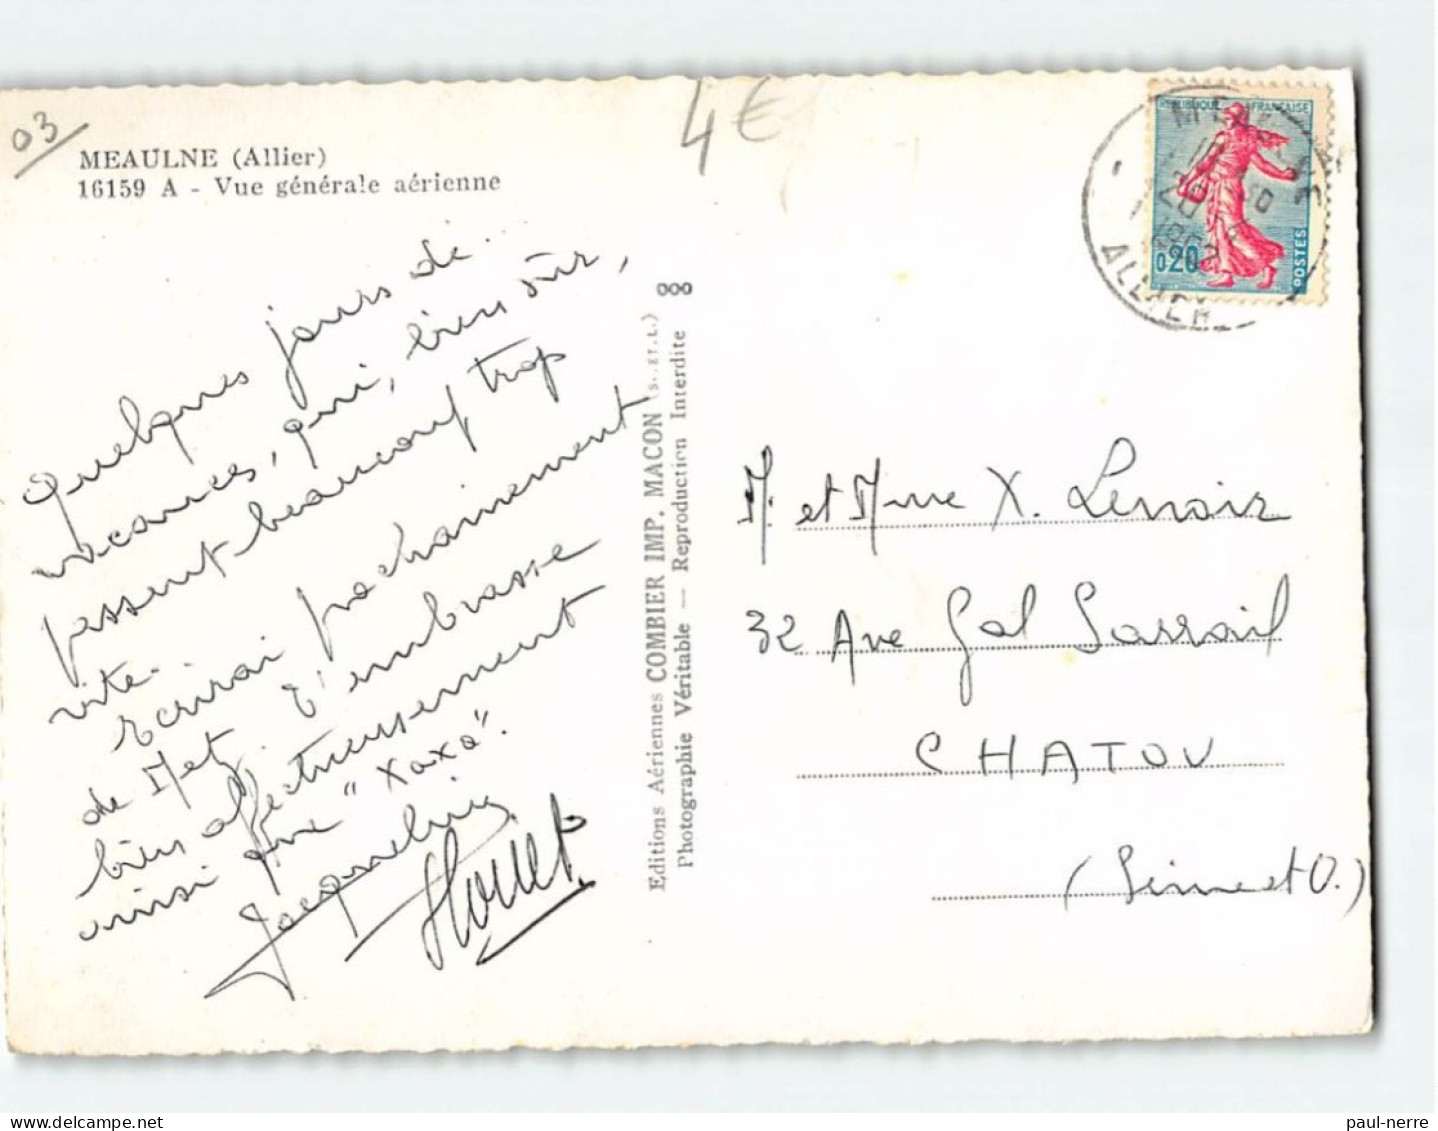 03
4€
MEAULNE (Allier)
16159 A - Vue générale aérienne
Quelques jours de
vacances, qui, bien sûr,
passent beaucoup trop
vite.
Ecrirai prochainement
de Met t'embrasse
bien affectueusement
ainsi que "Xaxa".
Jacqueline
Editions Aériennes COMBIER IMP. MACON (S.-ET-L.)
Photographie Véritable — Reproduction Interdite
REPUBLIQUE FRANÇAISE
0,20
POSTES
MEAULNE
ALLIER
M. et Mme X. Lenoir
32 Ave Gal Sarrail
CHATOU
(Seine et O.)
paul-nerre